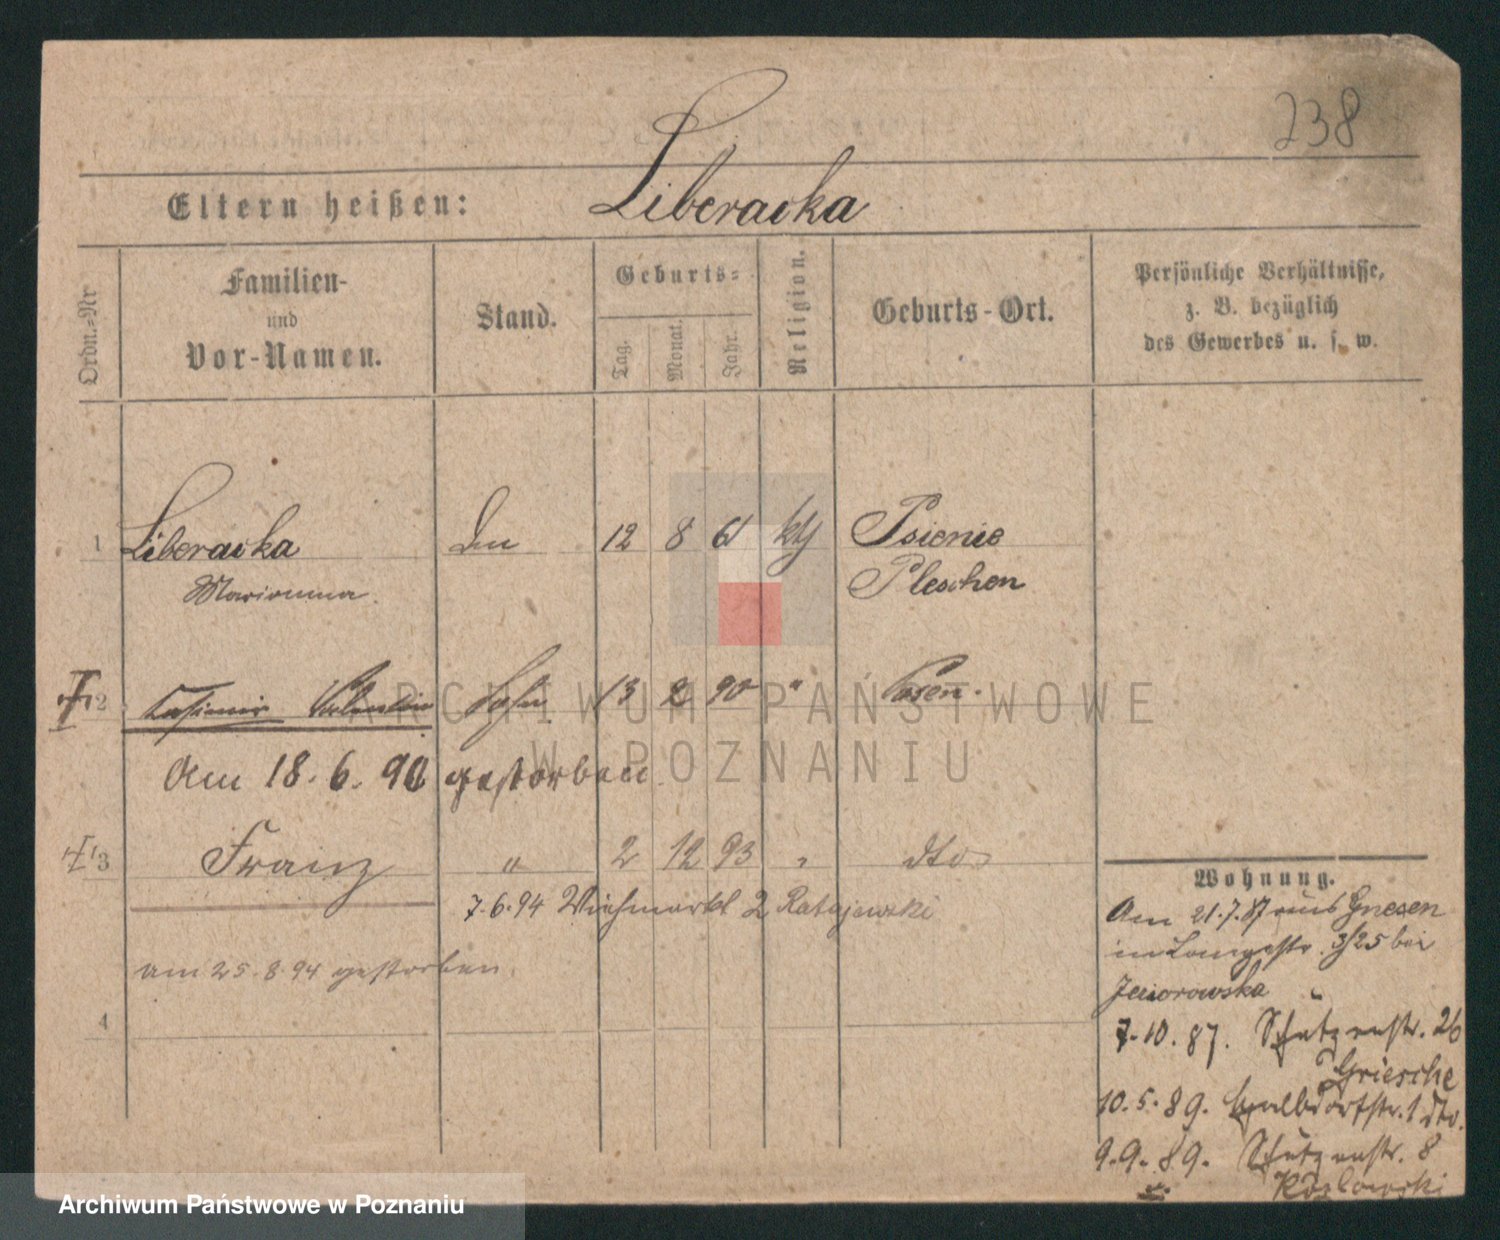 238
Eltern heißen: Liberacka
Ordn.=Nr
Familien-
und
Vor-Namen.
Stand.
Geburts=
Tag.
Monat.
Jahr.
Religion.
Geburts-Ort.
Persönliche Verhältnisse,
z. B. bezüglich
des Gewerbes u. s. w.
1 Liberacka 12 8 61 kth Psienie
Marianna Pleschen
2 Casimir Valentin Sohn 13 2 90 " Posen.
Am 18.6.90 gestorben
3 Franz " 2 12 93 " dto
7.6.94 Viehmarkt 2 Ratajewski
am 25.8.94 gestorben.
4
Wohnung.
Am 21.7.87 aus Gnesen
in Langestr. 3/25 bei
Jeziorowska
7.10.87. Schützenstr. 26
Griesche
10.5.89. Halbdorfstr. 1 dto.
9.9.89. Schützenstr. 8
Kozlowski
ARCHIWUM PAŃSTWOWE
W POZNANIU
Archiwum Państwowe w Poznaniu